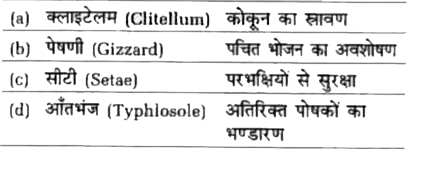 (a) क्लाइटेलम (Clitellum) कोकून का स्रावण
(b) पेषणी (Gizzard) पचित भोजन का अवशोषण
(c) सीटी (Setae) परभक्षियों से सुरक्षा
(d) आँतभंज (Typhlosole) अतिरिक्त पोषकों का
भण्डारण